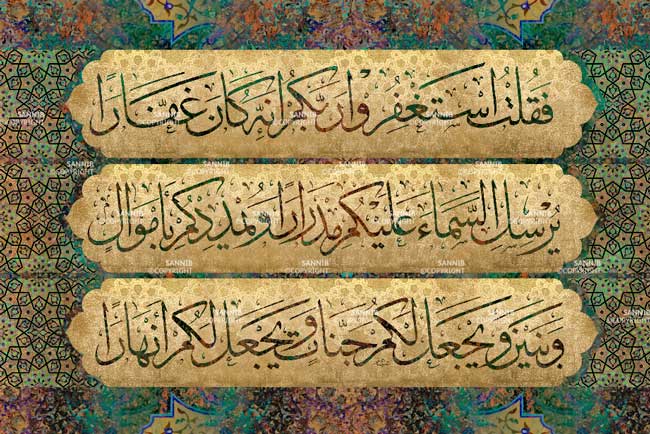 فَقُلْتُ اسْتَغْفِرُوا رَبَّكُمْ إِنَّهُ كَانَ غَفَّارًا
يُرْسِلِ السَّمَاءَ عَلَيْكُم مِّدْرَارًا وَيُمْدِدْكُم بِأَمْوَالٍ
وَبَنِينَ وَيَجْعَل لَّكُمْ جَنَّاتٍ وَيَجْعَل لَّكُمْ أَنْهَارًا
SANNIB
©COPYRIGHT